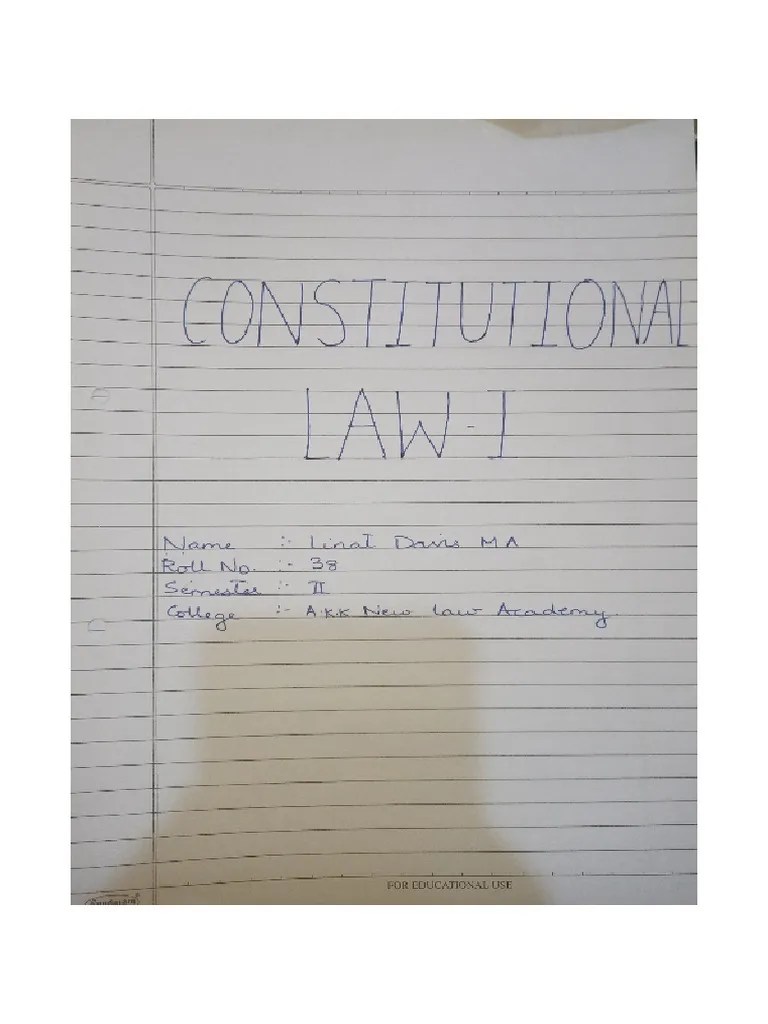 CONSTITUTIONAL
LAW-I
Name :- Linat Davis M A
Roll No. :- 38
Semester :- II
College :- A.K.K New Law Academy.
FOR EDUCATIONAL USE